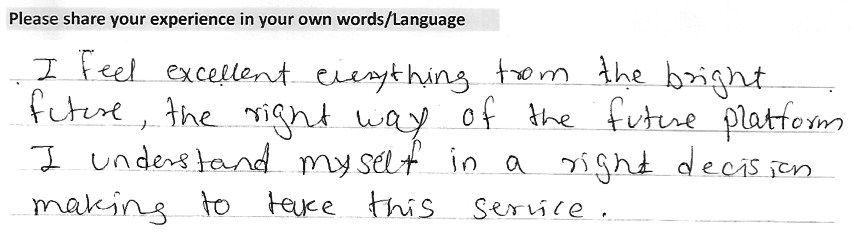 Please share your experience in your own words/Language
I feel excellent everything from the bright
future, the right way of the future platform
I understand myself in a right decision
making to take this service.